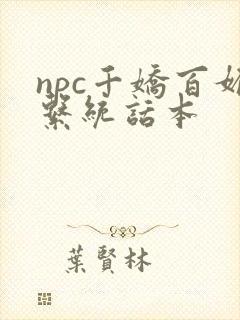 npc千嬌百媚
繫統話本
葉賢林